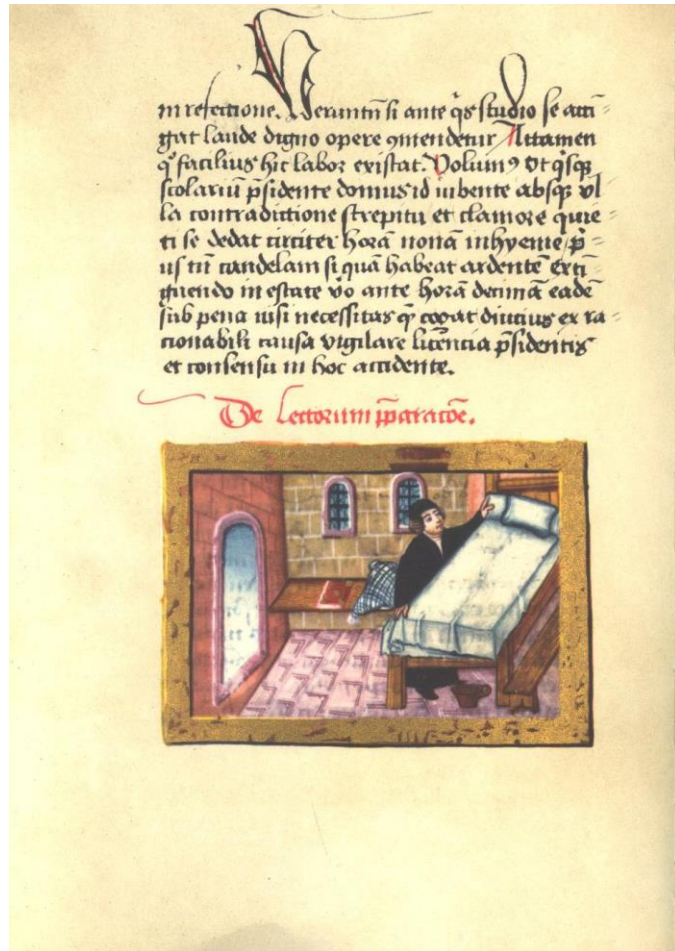 in refectione. Veruntn̄ si ante q̄s studio se acti
gat laude digno opere ꝯmendetur Attamen
qͦ facilius hic labor existat. Volumꝰ vt q̄sqꝫ
scolariū p̄sidente domus id iubente absqꝫ vl
la contradictione strepitu et clamore quie
ti se dedat circiter horā nonā in hyeme p̄
us tn̄ candelam si quā habeat ardentē exti
guendo in estate v̄o ante horā decimā eadē
sub pena nisi necessitas q̄ cogat diucius ex ra
cionabili causa vigilare licencia p̄sidentis
et consensu in hoc accidente.
De lectorum p̄paracōe.